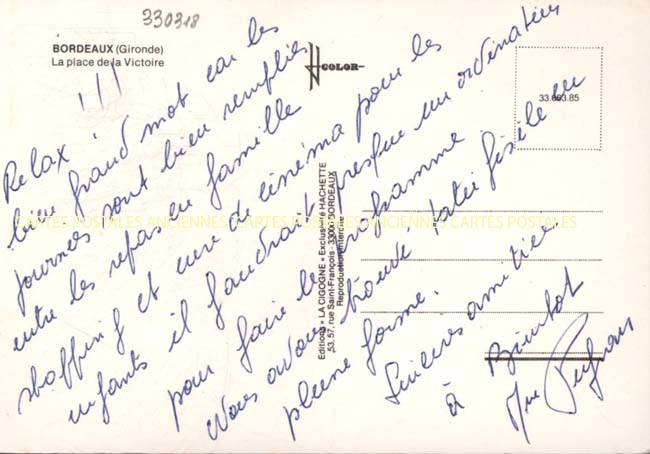 330318
BORDEAUX (Gironde)
La place de la Victoire
COLOR
33.063.85
Relax ! !!!
bien grand mot car les
journées sont bien remplies
entre les repas en famille
shopping et cure de cinéma pour les
enfants il faudrait presque un ordinateur
pour faire le programme
Nous avons trouvé tatie Gisèle en
pleine forme.
Sincères amitiés.
à Bientôt
Mme
Editions • LA CIGOGNE • Exclusivité HACHETTE
53, 57, rue Saint-François - 33000 BORDEAUX
Reproduction interdite
CARTES POSTALES ANCIENNES CARTES POSTALES ANCIENNES CARTES POSTALES